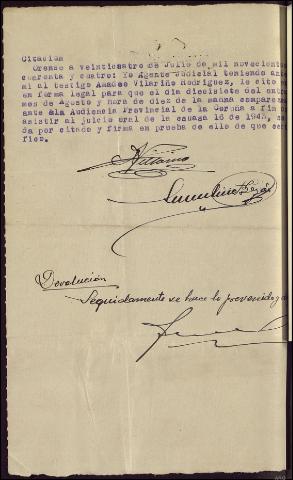 Citacion
Orense a veinticuatro de Julio de mil novecientos
cuarenta y cuatro: Yo Agente Judicial teniendo ante
mi al testigo Amadeo Vilariño Rodriguez, le cito
en forma legal para que el dia diecisiete del
mes de Agosto y hora de diez de la comparezca
ante la Audiencia Provincial de la Coruña a fin
asistir al juicio oral de la causa 16 de 1943,
da por citado y firma en prueba de ello de que cer
fico.
Devolución
Seguidamente se hace lo prevenido